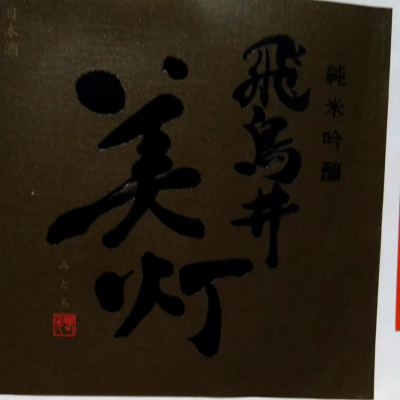 純米吟醸
飛鳥井
美灯
みとも
日本酒